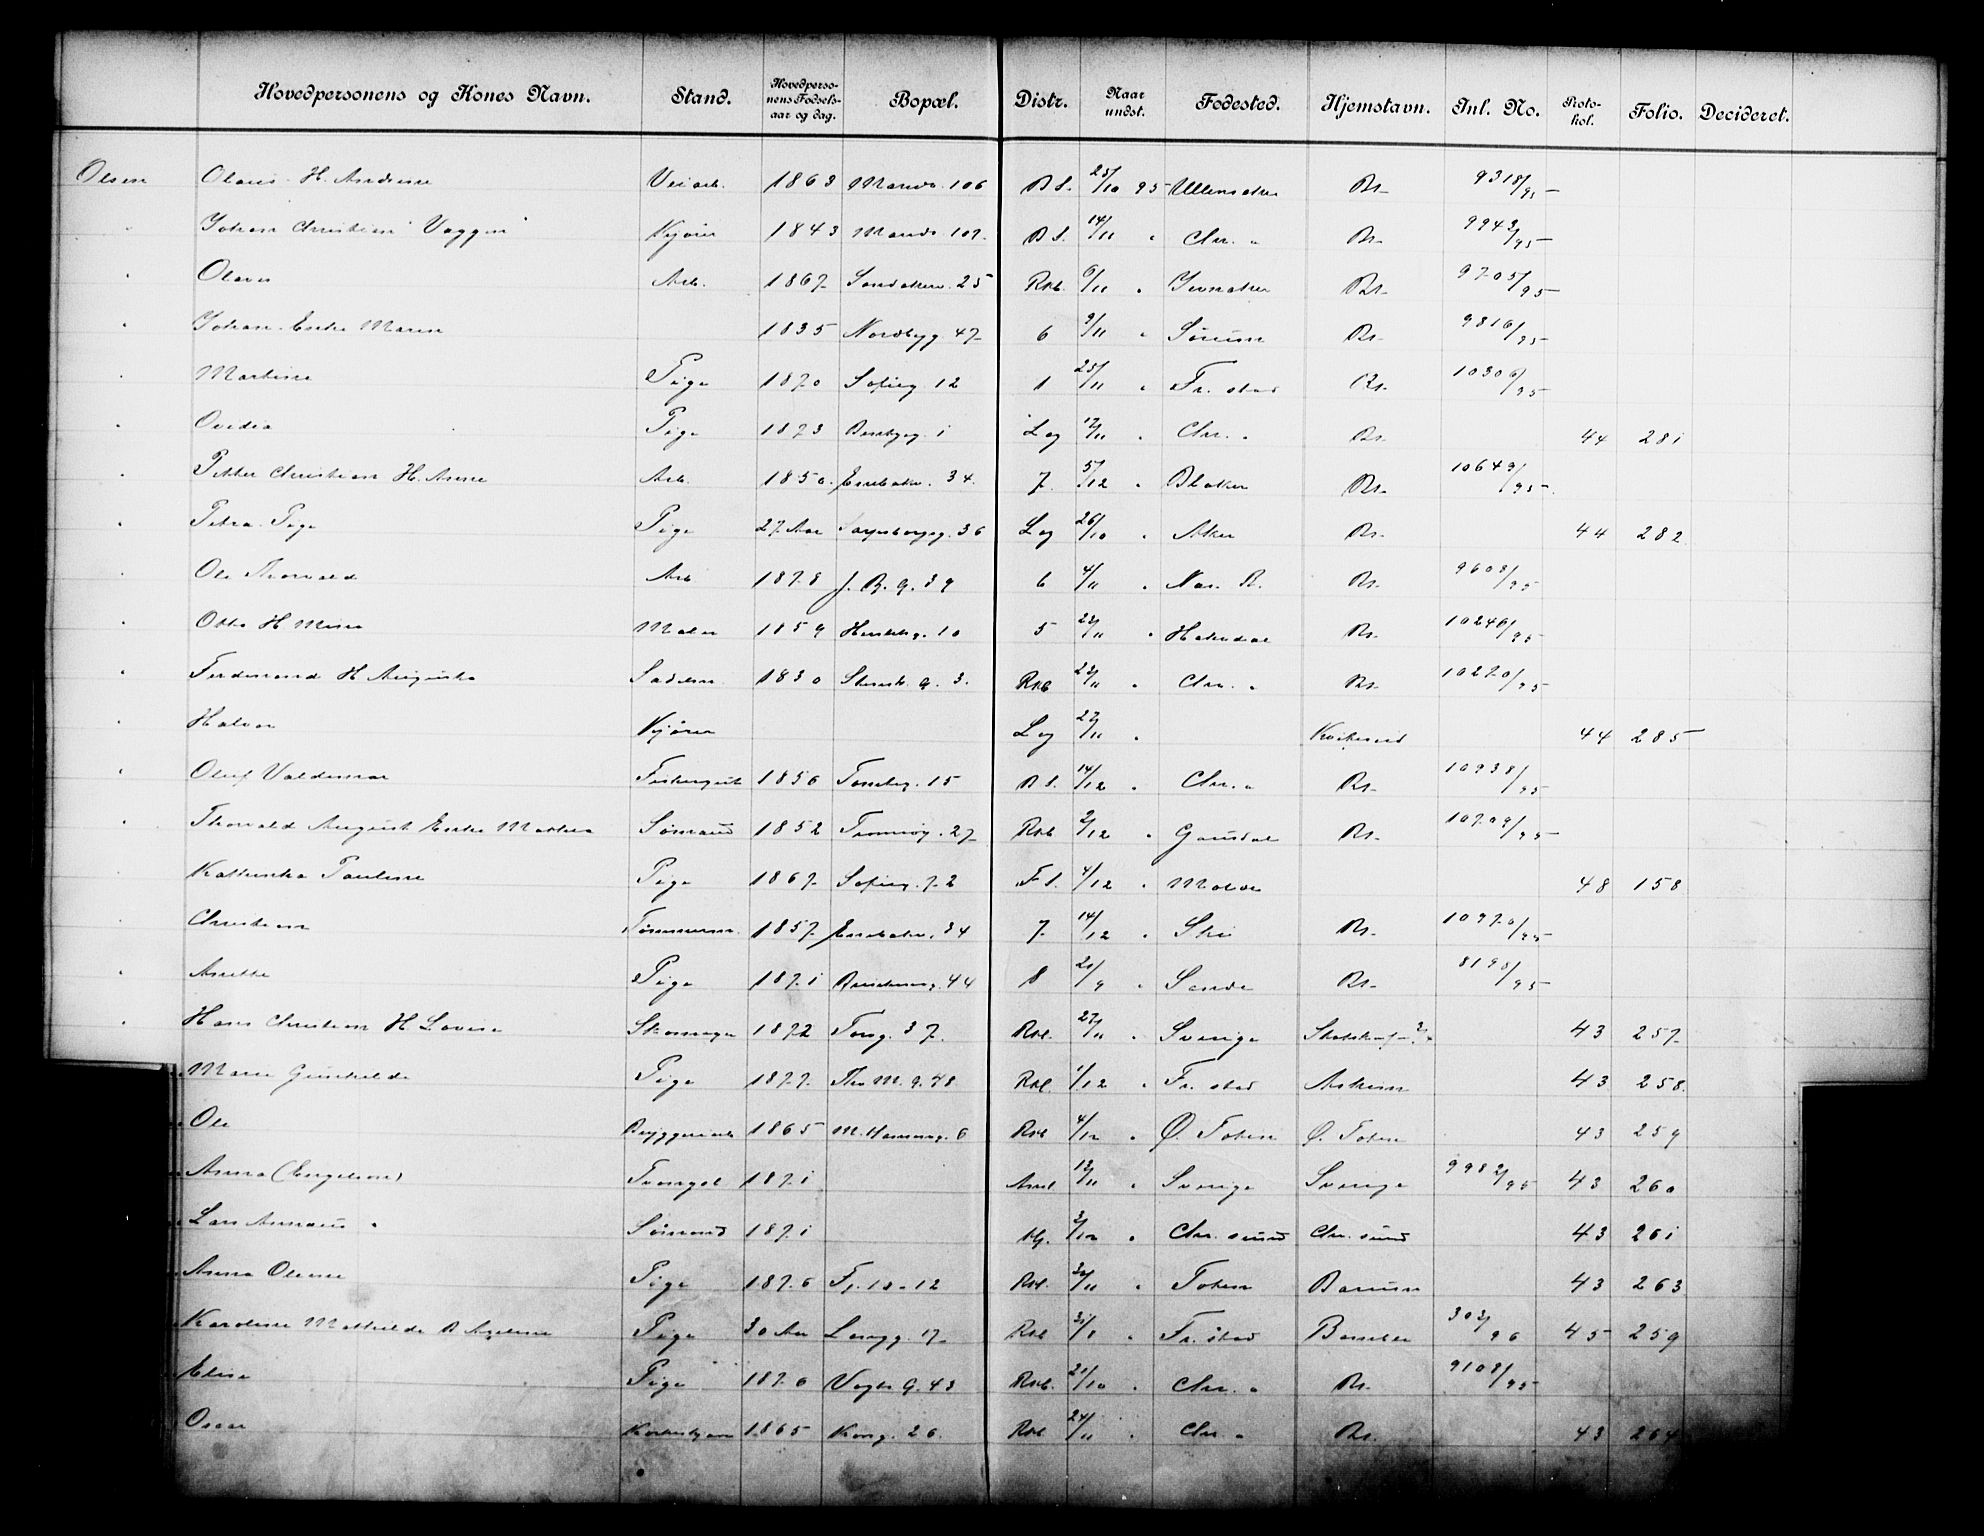 Hovedpersonens og Kones Navn. Stand. Hovedperso-nens Fødsels-aar og dag. Bopæl. Distr. Naar undst. Fødested. Hjemstavn. Inl. No. Proto-kol. Folio. Decideret.
Olsen Olaus H. Andrine Veiarb. 1863 Marids. 106 B S. 23/10 95 Ullensaker Br. 9318/95
" Johan Christian "Vaggin" Kjører 1843 Marids. 107. B S. 14/11 " Chr. a Br. 9943/95
" Olaves Arb. 1867 Sandakerv. 25 Rkl. 6/11 " Jevnaker Br. 9705/95
" Johan. Enke Maren 1835 Nordbyg. 47 6 9/11 " Sørum Br. 9816/95
" Martine Pige 1870 Sofieg. 12 1 25/11 " Fr. stad Br. 10306/95
" Ovidia Pige 1873 1 Lg 12/11 " Chr. a Br. 44 281
" Petter Christian H. Anne Arb. 1850. Enebakv. 34. 7 5/12 " Blaker Br. 10649/95
" Petra. Pige Pige 27 Aar Sarpsborgg. 36 Lg 26/10 " Aker Br. 44 282
" Ole Thorvald Arb 1878 J. B. g. 39 6 4/11 " Nan. B. Br. 9608/95
" Otto H. Mina Maler 1859 10 5 23/11 " Hakedal Br. 10246/95
" Ferdinand H Augusta Sadelm. 1830 Stensb. g. 3. Rkl 23/11 " Chr. a Br. 10270/95
" Halvor Kjører Lg 27/11 " Kvikesund 44 285
" Oluf Valdemar 1856 Tønsbg. 15 B S. 14/12 " Chr. a Br. 10938/95
" Thorvald August Enke Mathea Sømand 1852 Tromsøg. 27 Rkl 2/12 " Gausdal Br. 10709/95
Kathinka Pauline Pige 1867 Sofieg. 72 F S. 4/12 " Molde 48 158
" Christian Tømmerm. 1857 Enebakv. 34 7 14/12 " Ski Br. 10970/95
" Anette Pige 1871 44 8 21/9 " Sande Br. 8198/95
" Hans Christian H Lovise Skomager 1872 Torvg. 37. Rkl. 27/11 " Sverige 43 257
" Marie Gunhilde Pige 1877 Tho M. g. 48 Rkl. 1/12 " Fr. stad Askim 43 258
" Ole Bryggeriarb 1865 6 Rkl 4/12 " Ø. Toten Ø. Toten 43 259
" Anna (Engelsen) Tvangsl 1871 12/11 " Sverige Sverige 9982/95 43 260
" Lars Annæus Sømand 1871 3/12 " Chr. sund Chr. sund 43 261
" Anna Oline Pige 1876 12 Rkl. 30/11 " Toten Bærum 43 263
" Karoline Mathilde B Agelina Pige 30 Aar Langg. 17 Rkl 31/8 " Fr. stad Bamble 303/96 45 259
" Elise Pige 1876 Vogts G. 43 Rkl. 21/10 " Chr. a Br. 9108/95
" Oscar 1865 Kong. 26 Rkl 24/11 " Chr a Br. 43 264